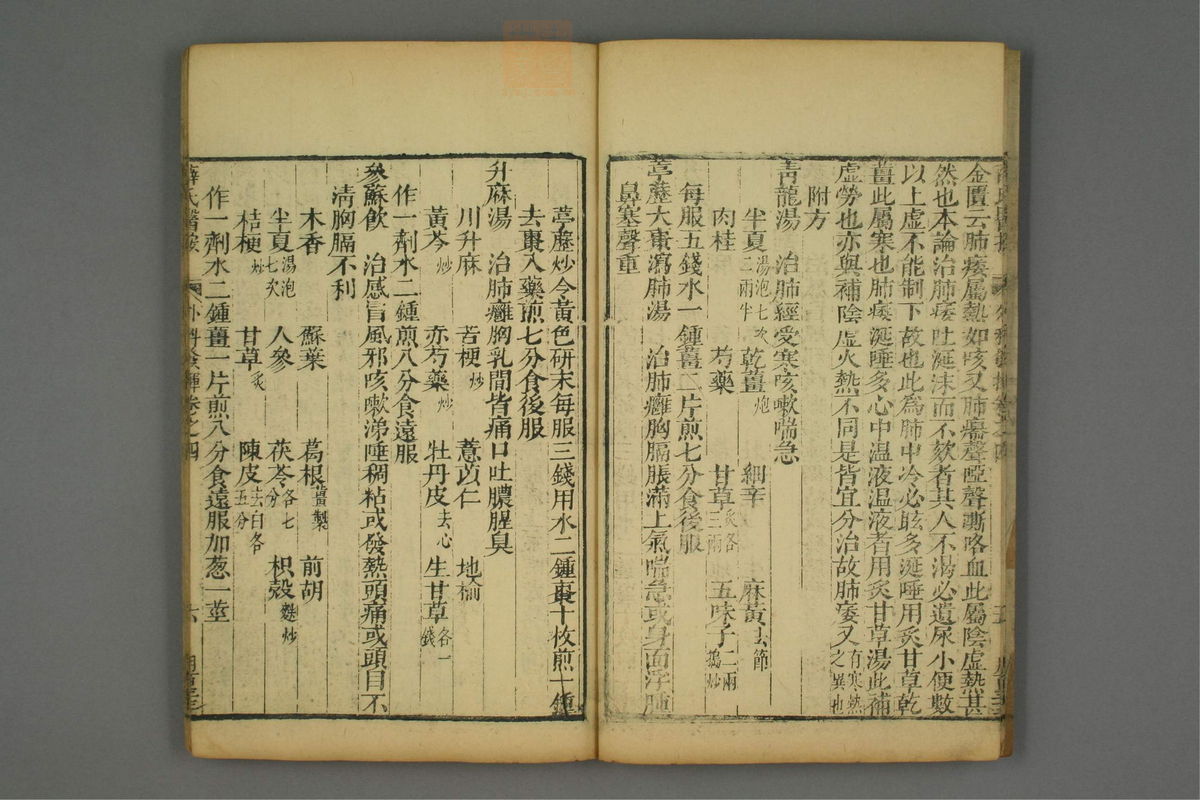 金匱云肺痿屬熱如咳又肺瘍聲啞聲嘶咯血此屬陰虛熱甚
然也本論治肺痿吐涎沫而不欬者其人不渴必遺尿小便數
以上虛不能制下故也此為肺中冷必眩多涎唾用炙甘草乾
薑此屬寒也肺痿涎唾多心中温液温液者用炙甘草湯此補
虛勞也亦與補陰虛火熱不同是皆宜分治故肺痿又有寒熱之異也
附方
青龍湯 治肺經受寒咳嗽喘急
半夏湯泡七次二兩半 乾薑炮 細辛 麻黃去節
肉桂 芍藥 甘草炙各三兩 五味子二兩搗炒
每服五錢水一鍾薑二片煎七分食後服
葶藶大棗瀉肺湯 治肺癰胸膈脹滿上氣喘急或身面浮腫
鼻塞聲重
葶藶炒令黃色研末每服三錢用水二鍾棗十枚煎一鍾
去棗入藥煎七分食後服
升麻湯 治肺癰胸乳間皆痛口吐膿腥臭
川升麻 苦梗炒 薏苡仁 地榆
黃芩炒 赤芍藥炒 牡丹皮去心 生甘草各一錢
作一劑水二鍾煎八分食遠服
參蘇飲 治感冒風邪咳嗽涕唾稠粘或發熱頭痛或頭目不
清胸膈不利
木香 蘇葉 葛根薑製 前胡
半夏湯泡七次 人參 茯苓各七分 枳殼麩炒
桔梗炒 甘草炙 陳皮去白各五分
作一劑水二鍾薑一片煎八分食遠服加葱一莖
薛氏醫按 外科發揮卷之四 六